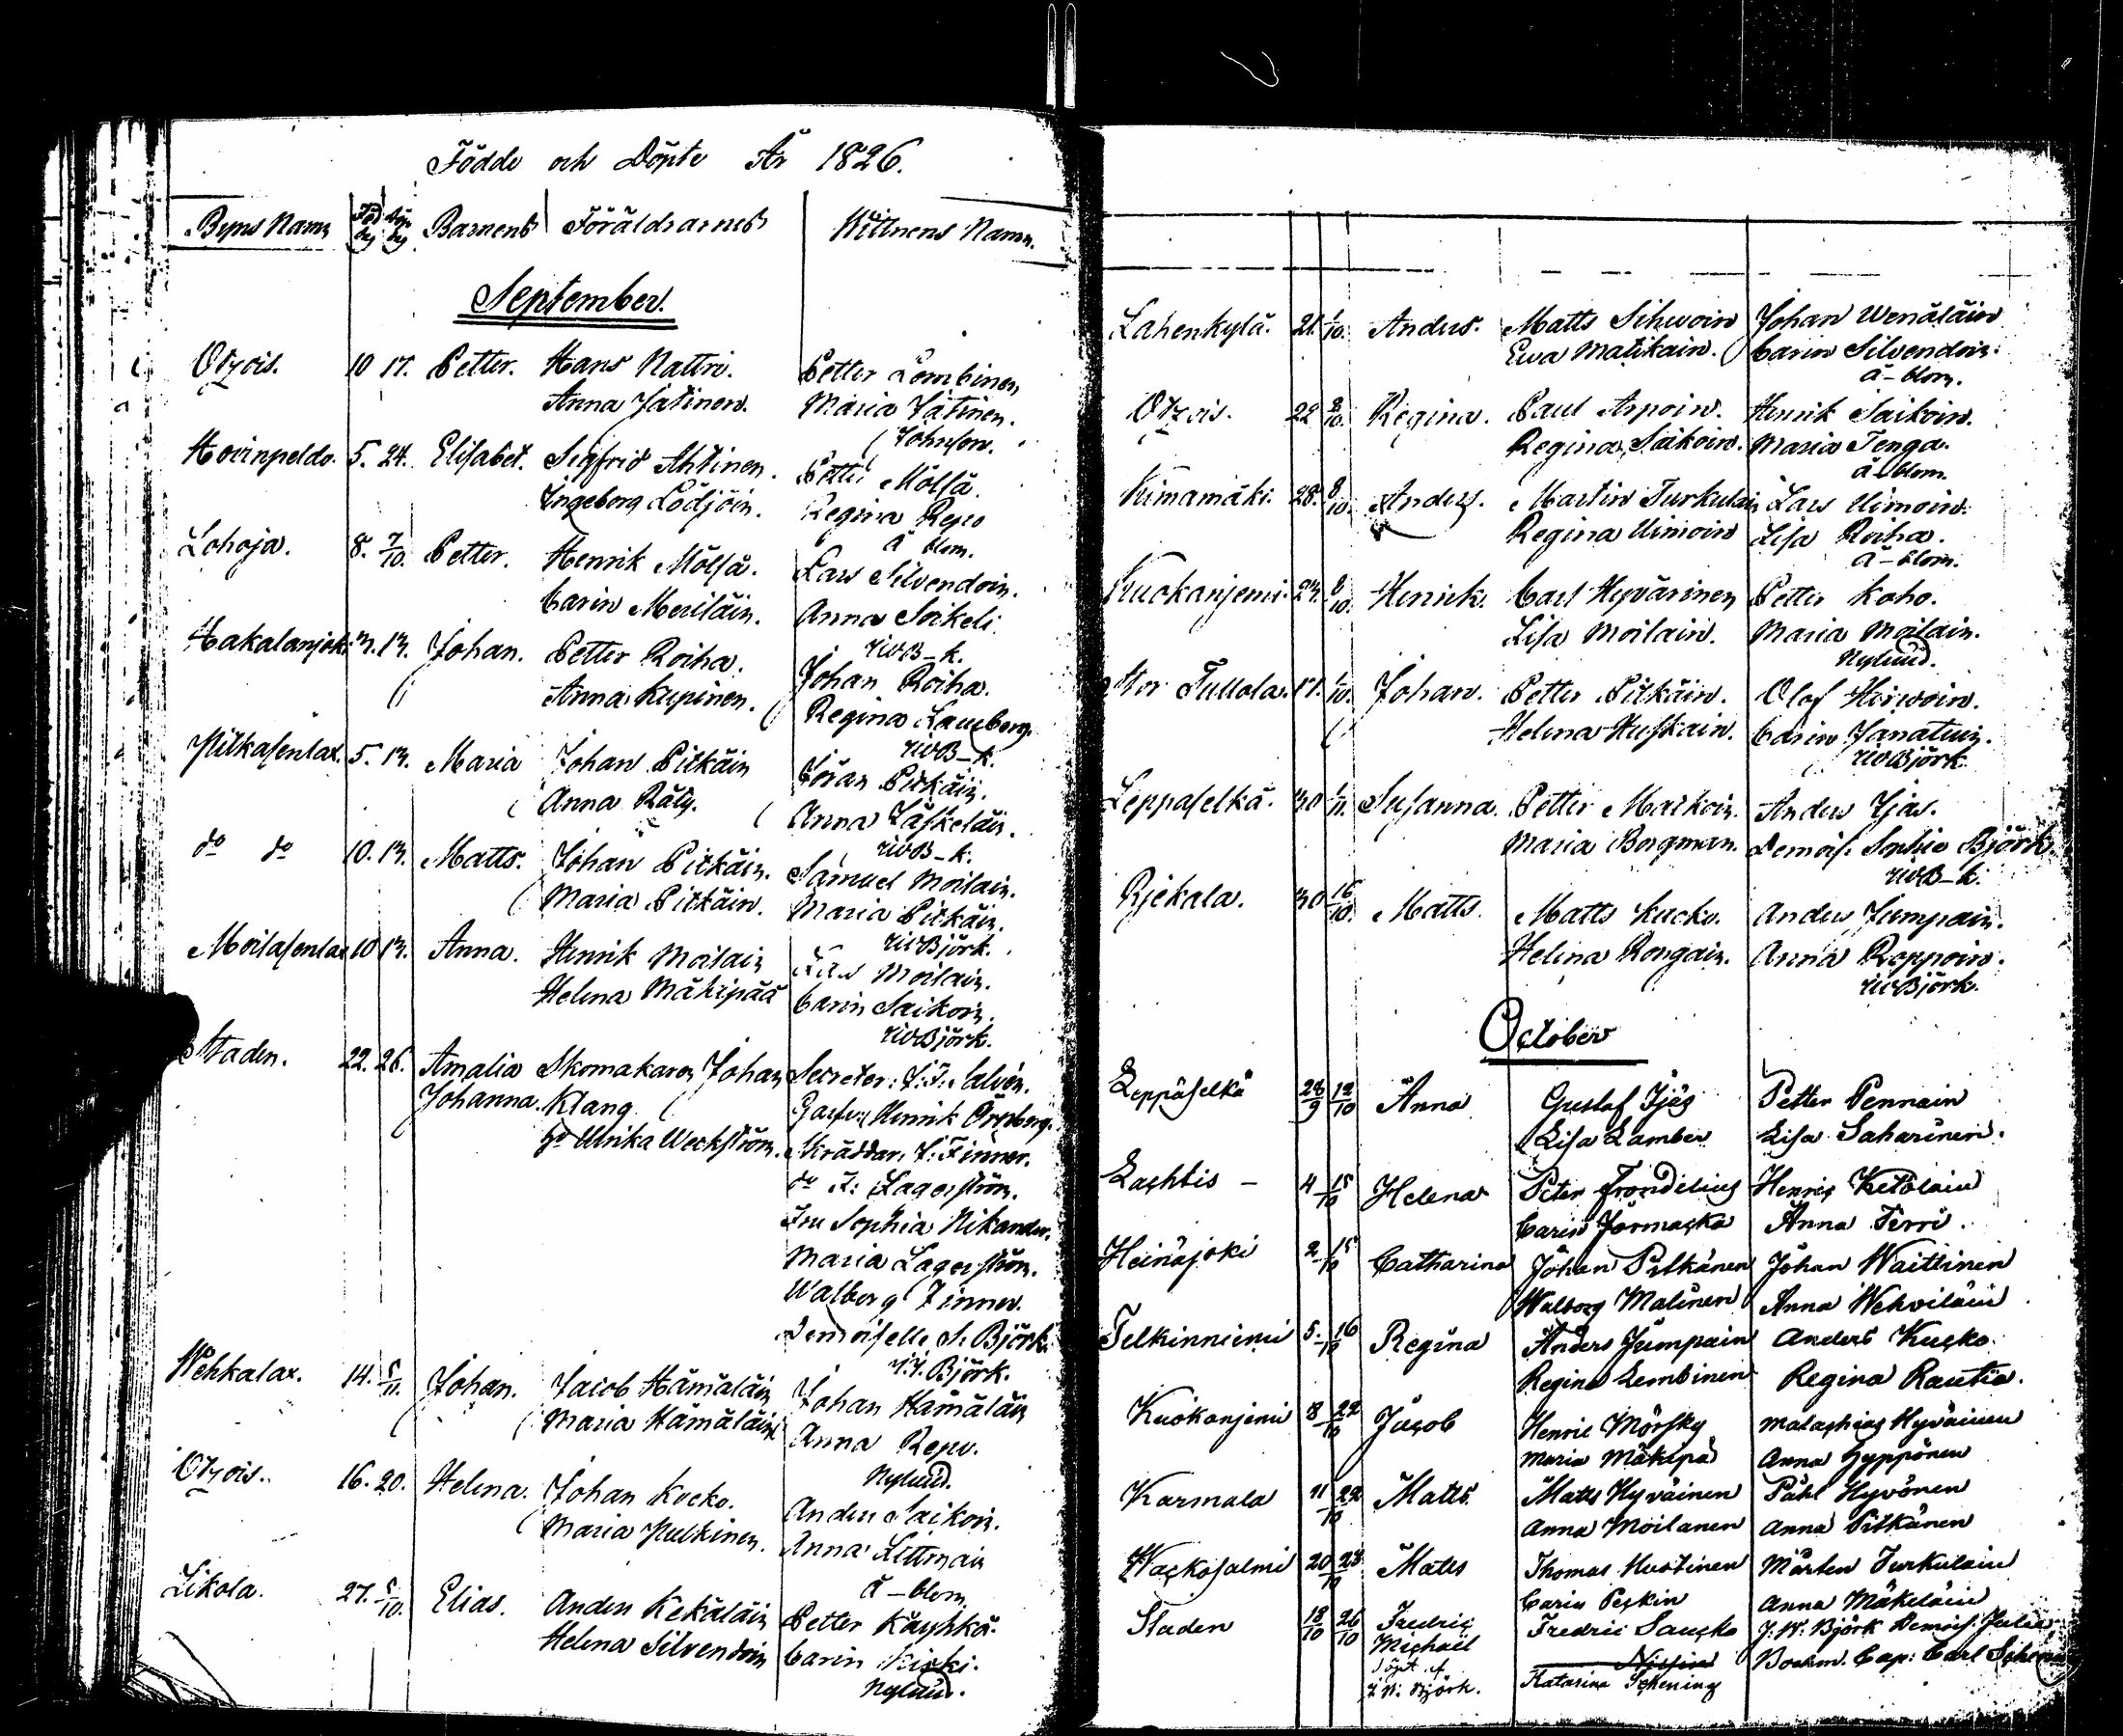 Födde och Döpte År 1826.
Byns Namn Föd. dag Döp. dag Barnens Föräldrarnes Wittnens Namn.
September.
Otzois. 10 17. Petter. Hans Nattri. Petter Lembinen
Anna Jatinen. Maria Jätinen.
Johnson.
Hovinpeldo. 5. 24. Elisabet. Sigfrid Ahtinen. Petter Mölsä.
Ingeborg Lödjöin. Regina Repo
ä blom.
Lohoja. 8. 7/10. Petter. Henrik Mölsä. Lars Silvendoin.
Carin Meriläin. Anna Sorkeli.
Hakalanjoki 3. 13. Johan. Petter Roiha. Johan Roiha.
Anna Kupinen. Regina Lamberg.
Pitkasenlax. 5. 13. Maria Johan Pitkäin Göran Pitkäin.
Anna Räty. Anna Jäskeläin.
do do 10. 13. Matts. Johan Pitkäin. Samuel Moilain.
Maria Pitkäin. Maria Pitkäin.
Björk.
Moilasenlax 10 13. Anna. Henrik Moilain Lars Moilain.
Helena Mäkipää Carin Saikoin.
Björk.
Staden. 22. 26. Amalia Skomakaren Johan Secreter: J: F: Alvén.
Johanna. Klang Henrik Örnberg.
Ulrika Weckström. Skräddar. J: Finner.
do Z: Lagerström.
Fru Sophia Nikander.
Maria Lagerström.
Walborg Finner.
Demoiselle S. Björk.
Björk.
Wehkalax. 14. 5/11. Johan. Jacob Hämäläin Johan Hämäläin
Maria Hämäläin Anna Repo.
Nylund.
Otzois. 16. 20. Helena. Johan Kocko. Anders Saikoin.
Maria Hulkinen. Anna Littmain
ä-blom.
Likola. 27. 5/10. Elias. Anders Kekäläin Petter Käyhkä.
Helena Silvendoin Carin Kirki.
Nylund.
Lahenkylä. 21. 1/10. Anders. Matts Sihwoin Johan Wenäläin
Ewa Matikain. Carin Silvendoin.
ä-blom.
Otzois. 22 8/10. Regina. Paul Arpoin. Henrik Saikoin.
Regina Saikoin. Maria Tenga.
ä blom.
Kimamäki. 28. 8/10. Anders. Martin Turkulain Lars Uimoin.
Regina Uimoin Lisa Roiha.
ä-blom.
Kuokanjemi. 24. 8/10. Henrik. Carl Hyvärinen Petter Koho.
Lisa Moilain. Maria Moilain.
Nylund.
Stor Tullola. 17. 1/10. Johan. Petter Pitkäin. Olof Hirwoin.
Helena Huskain. Carin Janatuin.
Björk.
Leppaselkä. 30 1/11. Susanna. Petter Maikoin. Anders Ijäs.
Maria Borgman. Demois. Sophia Björk.
Rjekala. 30 16/10. Matts. Matts Kucko. Anders Jumpain.
Helena Rongain. Anna Roppoin.
Björk.
October
Leppäselkä 28/9 12/10 Anna Gustaf Ijäs Petter Pennain
Lisa Lamber Lisa Saharinen.
Lachtis - 4 15/10 Helena Peter Frondelius Henric Ketolain
Carin Jormacka Anna Terri.
Heinäjoki 2 15/10 Catharina Johan Pitkänen Johan Waittinen
Walborg Malinen Anna Wehviläin
Telkinniemi 5. 16/10 Regina Anders Jumpain Anders Kucko.
Regina Lembinen Regina Rautia.
Kuokanjemi 8 22/10 Jacob Henric Mörsky Malachias Hyväinen
Maria Mäkipä Anna Hyppönen
Karmala 11 22/10 Matts. Matts Hyväinen Påhl Hyvönen
Anna Moilanen Anna Pitkänen
Wackosalmi 20 23/10 Matts Thomas Mustinen Mårten Turkulain
Carin Peckin Anna Mäkeläin
Staden 18/10 26/10 Fredric Fredric Saucko J. W. Björk Demois. Julia
Michaël Boehm. Cap: Carl Schening
döpt af Katarina Schening
J. W. Björk.